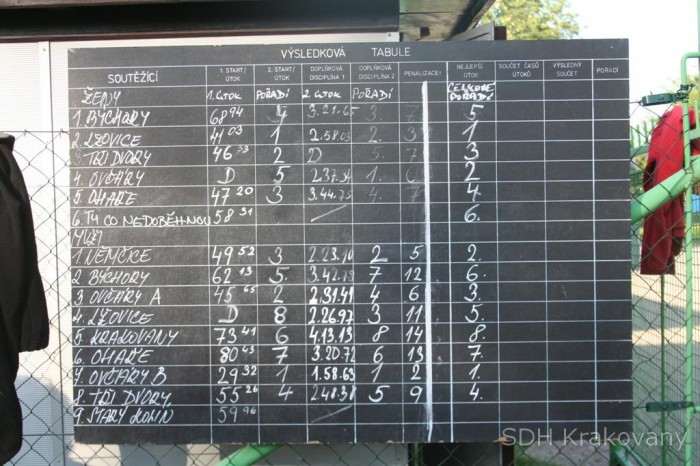 VÝSLEDKOVÁ TABULE
SOUTĚŽÍCÍ 1. START/ ÚTOK 2. START/ ÚTOK DOPLŇKOVÁ DISCIPLÍNA 1 DOPLŇKOVÁ DISCIPLÍNA 2 PENALIZACE NEJLEPŠÍ ÚTOK SOUČET ČASŮ ÚTOKŮ VÝSLEDNÝ SOUČET POŘADÍ
ŽENY 1. ÚTOK POŘADÍ 2. ÚTOK POŘADÍ CELKOVÉ POŘADÍ
1. BÝCHORY 68 94 4 3.21.65 3. 7 5.
2. LŽOVICE 41 03 1 2.58.03 2. 3 1.
3. TŘI DVORY 46 33 2 D 5. 7 3
4. OVČÁRY D 5 2.37.34 1. 6 2
5. OHAŘE 47 20 3 3.44.75 4. 7 4.
6. TY CO NEDOBĚHNOU 58 31 6.
MUŽI
1. NĚMČICE 49 52 3 2.23.70 2 5 2.
2 BÝCHORY 62 13 5 3.42.79 7 12 6.
3 OVČÁRY A 45 65 2 2.31.41 4 6 3.
4. LŽOVICE D 8 2.26.97 3 11 5.
5. KRAKOVANY 73 41 6 4.13.13 8 14 8.
6. OHAŘE 80 43 7 3.20.72 6 13 7.
7. OVČÁRY B 29 32 1 1.58.63 1 2 1.
8. TŘI DVORY 55 26 4 2.48.38 5 9 4.
9. STARÝ KOLÍN 59 96
SDH Krakovany